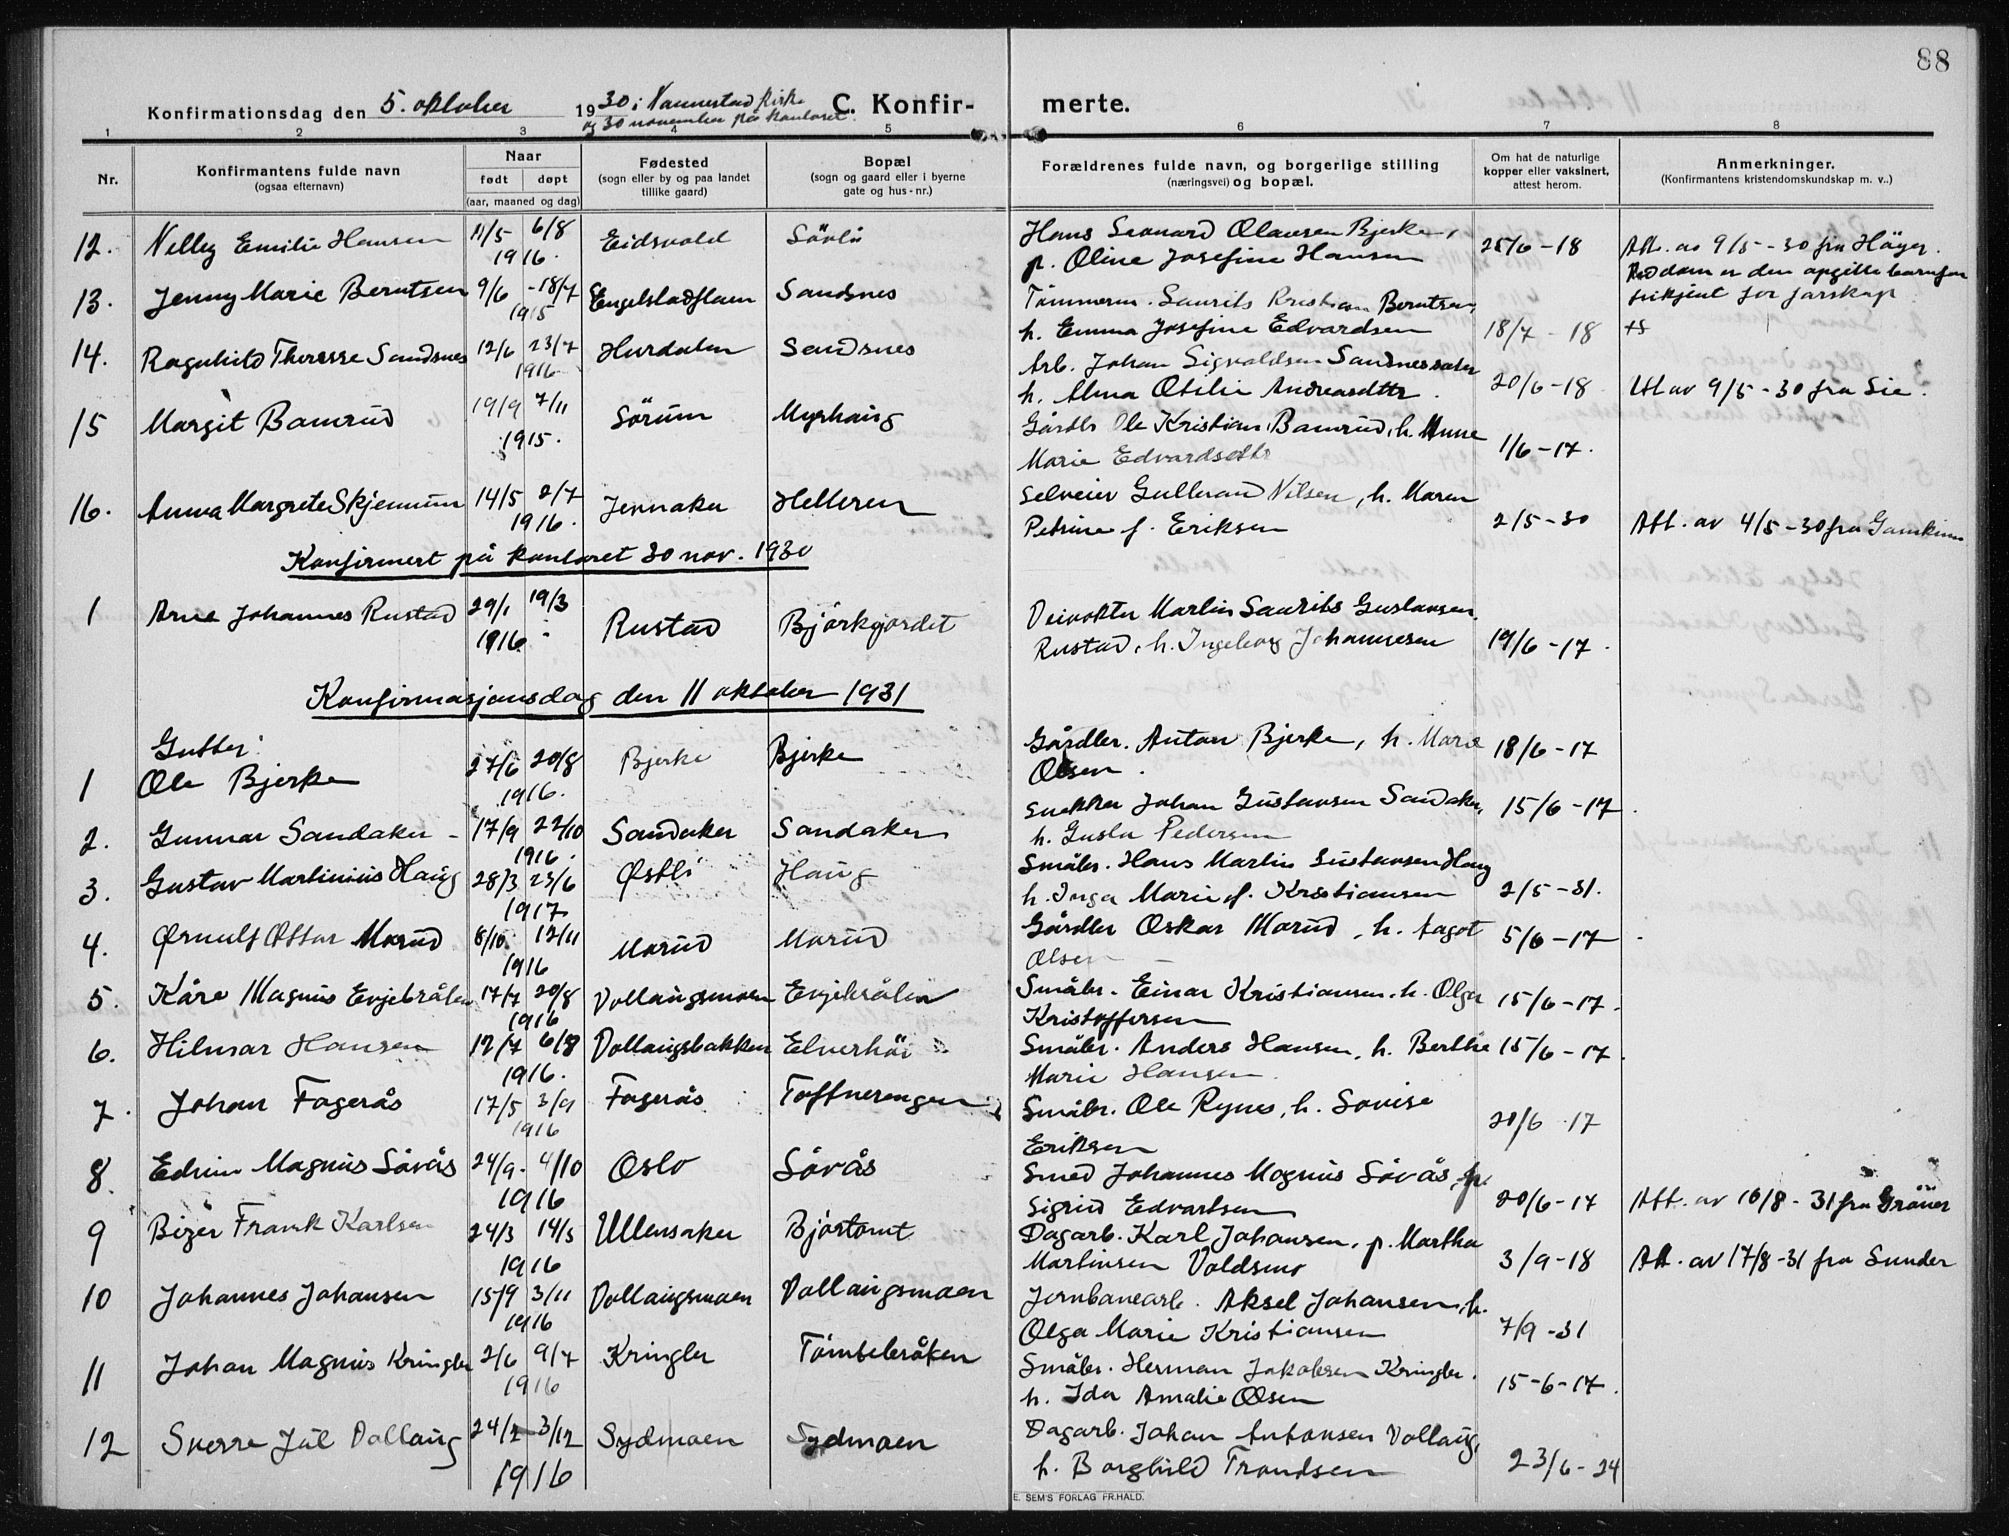 88
Konfirmationsdag den 5. oktober 1930 i Nannestad kirke C. Konfirmerte.
og 30 november på kontoret.
1 2 3 4 5 6 7 8
Nr. Konfirmantens fulde navn (ogsaa efternavn) Naar født døpt (aar, maaned og dag) Fødested (sogn eller by og paa landet tillike gaard) Bopæl (sogn og gaard eller i byerne gate og hus-nr.) Forældrenes fulde navn, og borgerlige stilling (næringsvei) og bopæl. Om hat de naturlige kopper eller vaksinert, attest herom. Anmerkninger. (Konfirmantens kristendomskundskap m. v..)
12. Nelly Emilie Hansen 11/5 6/8 Eidsvold Sövli Hans Leonard Olausen Bjerke, 25/6-18 Att. av 9/5-30 fra Höyer.
1916. p. Oline Josefine Hansen Ved dom er den opgitte barnefar
13. Jenny Marie Berntsen 9/6 -18/7 Engelstadflaen Sandsnes Tömmerm. Laurits Kristian Berntsen, frikjent for farskap
1915 h. Emma Josefine Edvardsen 18/7 - 18 ts
14. Ragnhild Therese Sandsnes 12/6 23/7 Hurdalen Sandsnes Arb. Johan Sigvaldsen Sandsnes
1916 h. Alma Otilie Andreasdttr. 20/6-18 Att av 9/5-30 fra Lie.
15 Margit Bamrud 19/9 7/11 Sörum Myrhaug Gårdbr Ole Kristian Bamrud, h. Anne
1915. Marie Edvardsdttr 1/6-17.
16. Anna Margrete Skjennum 14/5 2/7 Jennaker Helleren Selveier Gulbrand Nilsen, h. Maren
1916. Petrine f. Eriksen 2/5-30 Att. av 4/5-30 fra
Konfirmert på kontoret 30 nov. 1930
1 Arne Johannes Rustad 29/1 19/3 Rustad Björkgjordet Martin Laurits Gustavsen
1916 Rustad, h. Ingeborg Johannesen 19/6-17.
Konfirmasjonsdag den 11 oktober 1931
Gutter:
1 Ole Bjerke 27/6 20/8 Bjerke Bjerke Gårdbr. Anton Bjerke, h. Marie 18/6-17
1916. Olsen.
2. Gunnar Sandaker 17/9 22/10 Sandaker Sandaker Snekker Johan Gustavsen Sandaker, 15/6-17.
1916. h. Gusta Pedersen
3. Gustav Martinius Haug 28/3 23/6 Østli Haug Småbr. Hans Martin Gustavsen Haug
1917 h. Inga Marie f. Kristiansen 2/5-31.
4. Ørnulf Ottar Marud 8/10. 12/11 Marud Marud Gårdbr Oskar Marud, h. Aagot 5/6-17
1916 Olsen
5. Kåre Magnus Evjebråten 17/7 20/8 Vollaugsmoen Evjebråten Småbr. Einar Kristiansen. h. Olga 15/6-17.
1916 Kristoffersen
6. Hilmar Hansen 12/7 6/8 Vollaugsbakken Elverhöi Småbr. Anders Hansen, h. Berthe 15/6-17.
1916. Marie Hansen.
7. Johan Fagerås 17/5 3/9 Fagerås Toftnerengen Småbr. Ole Rynes, h. Lovise 20/6 17
1916 Eriksen
8. Edvin Magnus Sövås 24/9. 4/10 Oslo Sövås Smed Johannes Magnus Sövås, p.
1916 Sigrid Edvartsen 20/6-17 Att. av 10/8-31 fra Gröner
9 Birger Frank Karlsen 24/3 14/5 Ullensaker Björtomt Dagarb. Karl Johansen, p. Martha
1916 Martinsen Voldsmo 3/9-18 Att. av 17/8-31 fra Sunder
10 Johannes Johansen 15/9 3/11 Vollaugsmoen Vollaugsmoen Jernbanearb. Aksel Johansen, h.
1916 Olga Marie Kristiansen 7/9-31
11 Johan Magnus Kringler 2/6 9/7 Kringler Tömtebråten Småbr. Herman Jakobsen Kringler.
1916 h. Ida Amalie Olsen 15-6-17.
12 Sverre Jul Vollaug 24/2 3/12 Sydmoen Sydmoen Dagarb. Johan Antonsen Vollaug,
1916 h. Borghild Trondsen 23/6-24
E. SEM'S FORLAG FR.HALD.